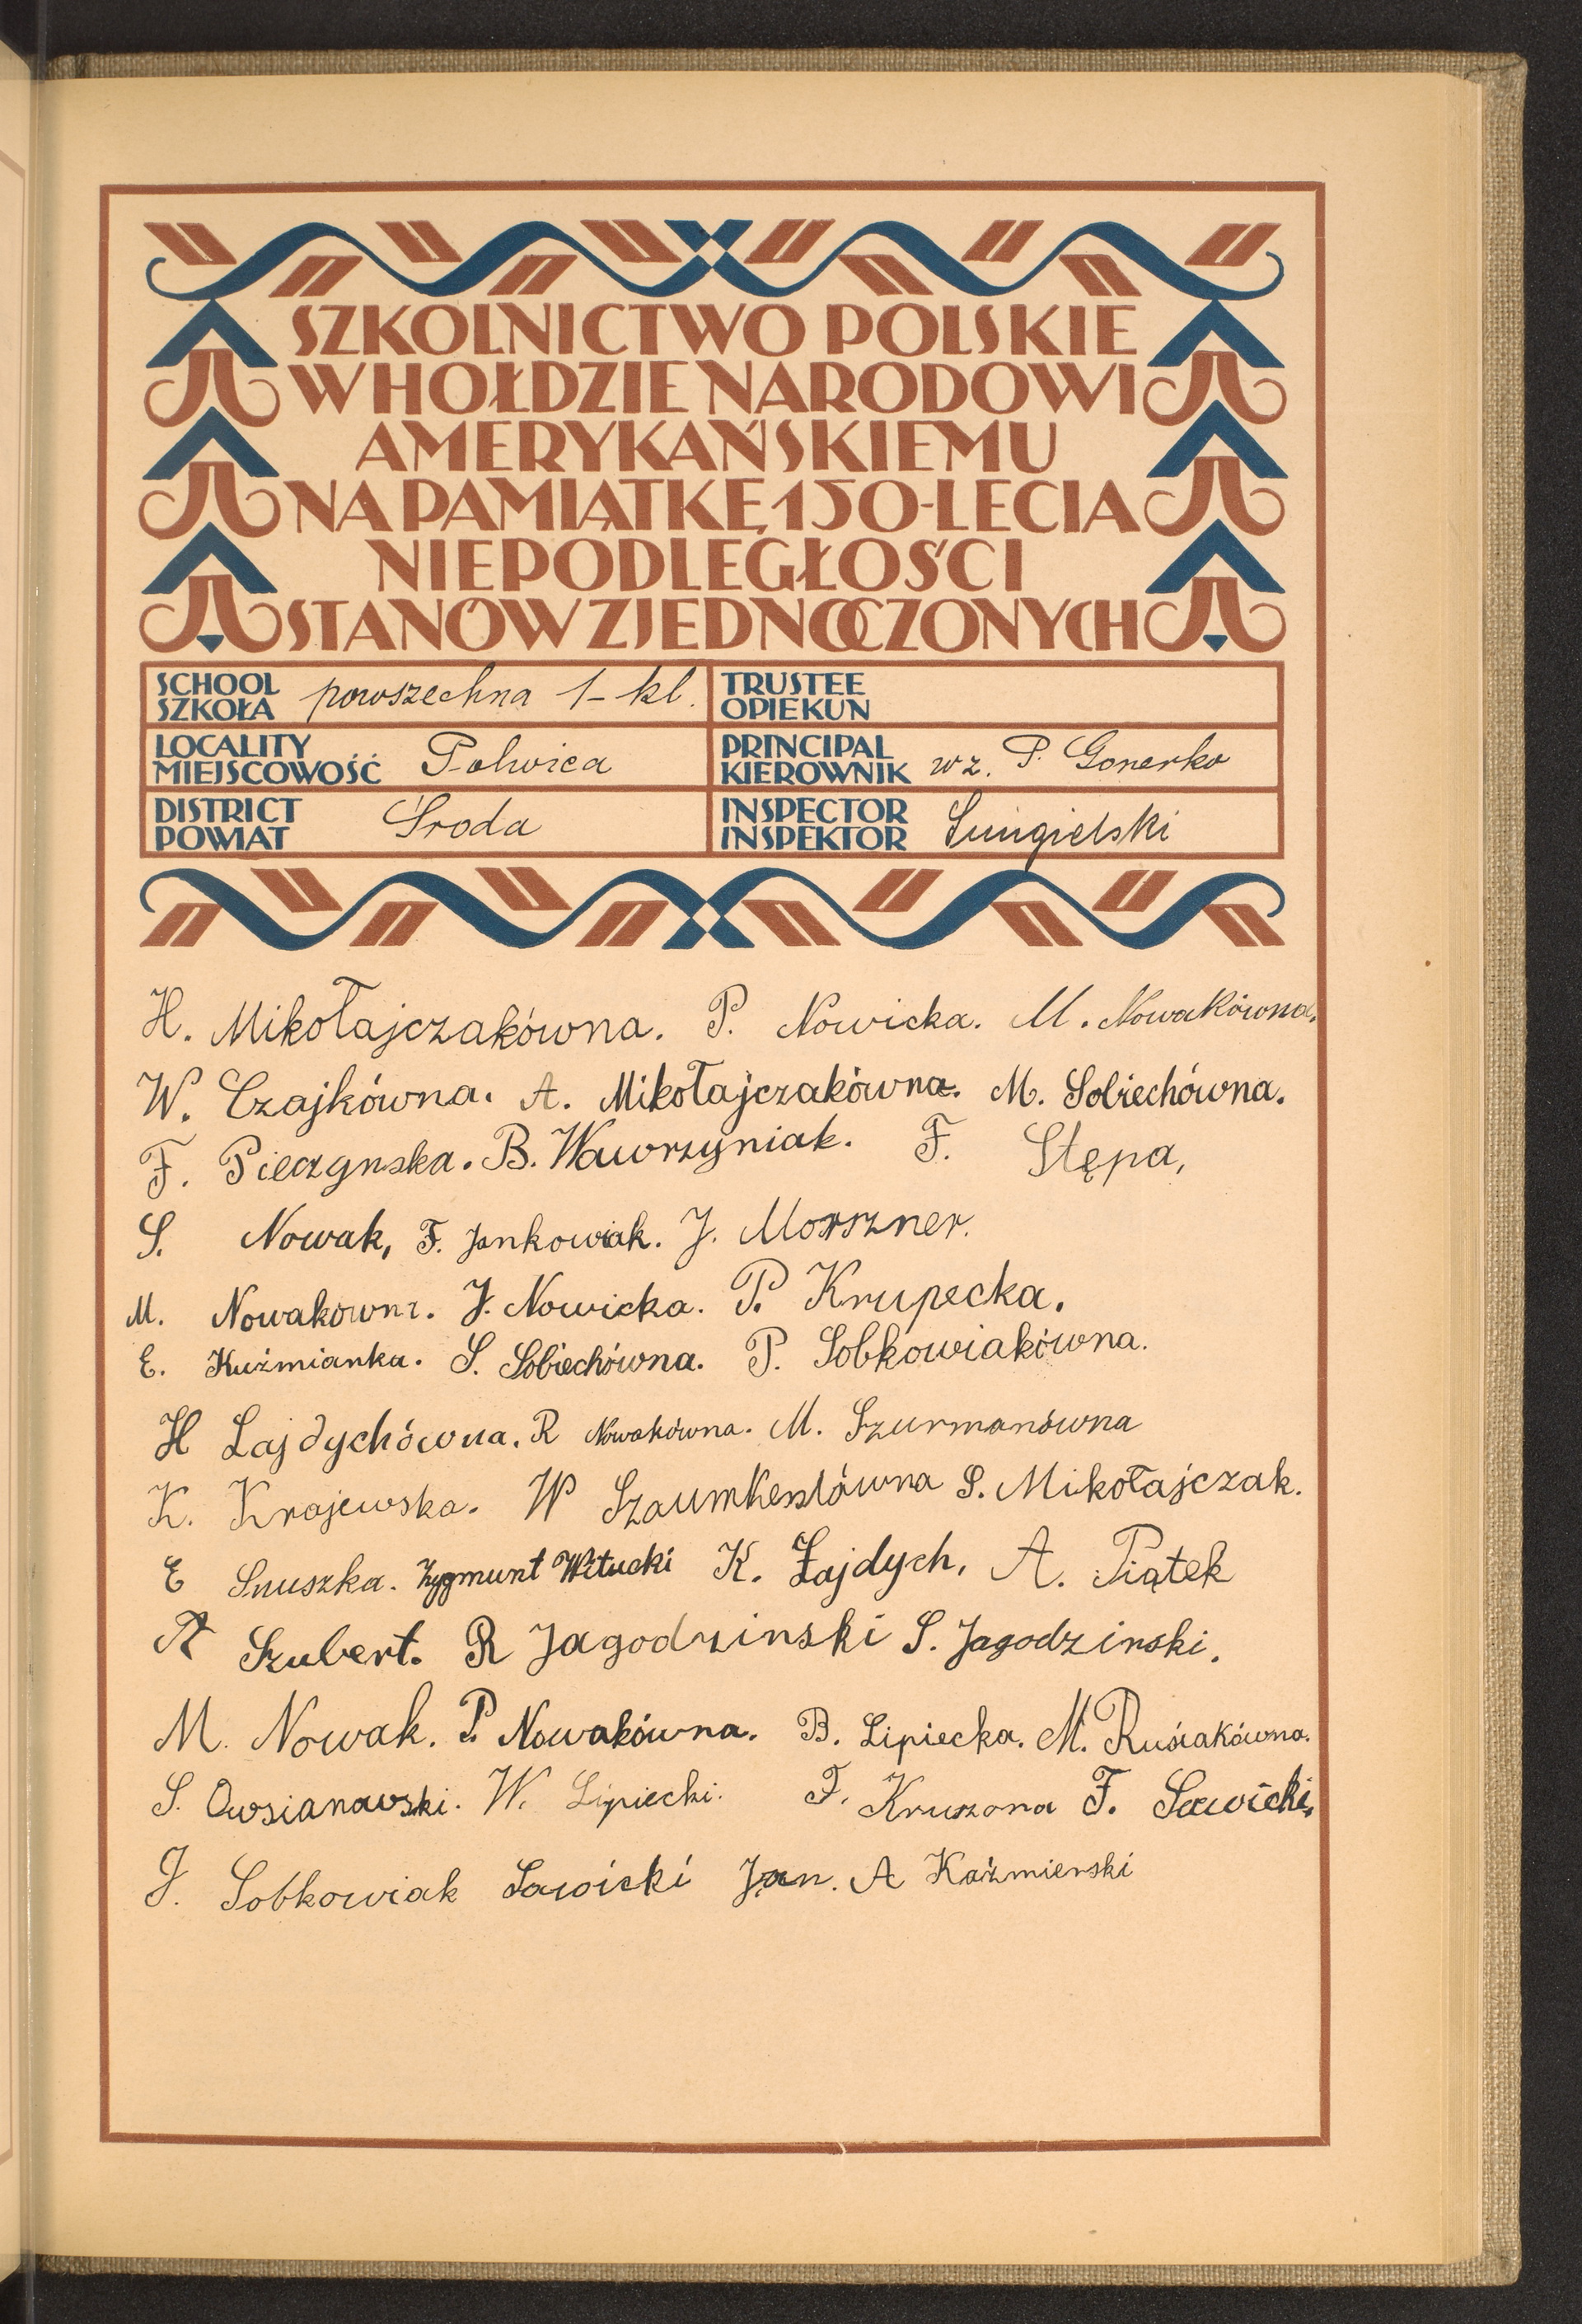 SZKOLNICTWO POLSKIE
W HOŁDZIE NARODOWI
AMERYKAŃSKIEMU
NA PAMIĄTKĘ 150-LECIA
NIEPODLEGŁOŚCI
STANÓW ZJEDNOCZONYCH
SCHOOL SZKOŁA powszechna 1-kl. TRUSTEE OPIEKUN
LOCALITY MIEJSCOWOŚĆ Polwica PRINCIPAL KIEROWNIK wz. P. Gonerko
DISTRICT POWIAT Środa INSPECTOR INSPEKTOR
H. Mikołajczakówna. P. Nowicka. M. Nowakówna.
W. Czajkówna. A. Mikołajczakówna. M. Sobiechówna.
F. Pieczynska. B. Wawrzyniak. F. Stępa,
S. Nowak, F. Jankowiak. J. Morszner.
M. Nowakowna. J. Nowicka. P. Krupecka.
E. Kuźmianka. S. Sobiechówna. P. Sobkowiakówna.
H Łajdychówna. R Nowakówna. M. Szurmanówna
K. Krajewska. W S. Mikołajczak.
E Snuszka. Zygmunt Witucki K. Łajdych, A. Piątek
A Szubert. R Jagodzinski S. Jagodzinski.
M. Nowak. P. Nowakówna. B. Lipiecka. M. Rusiakówna.
S. Owsianowski. W. Lipiecki. F. Kruszona F. Sawicki,
J. Sobkowiak Sawicki Jan. A Kaźmierski